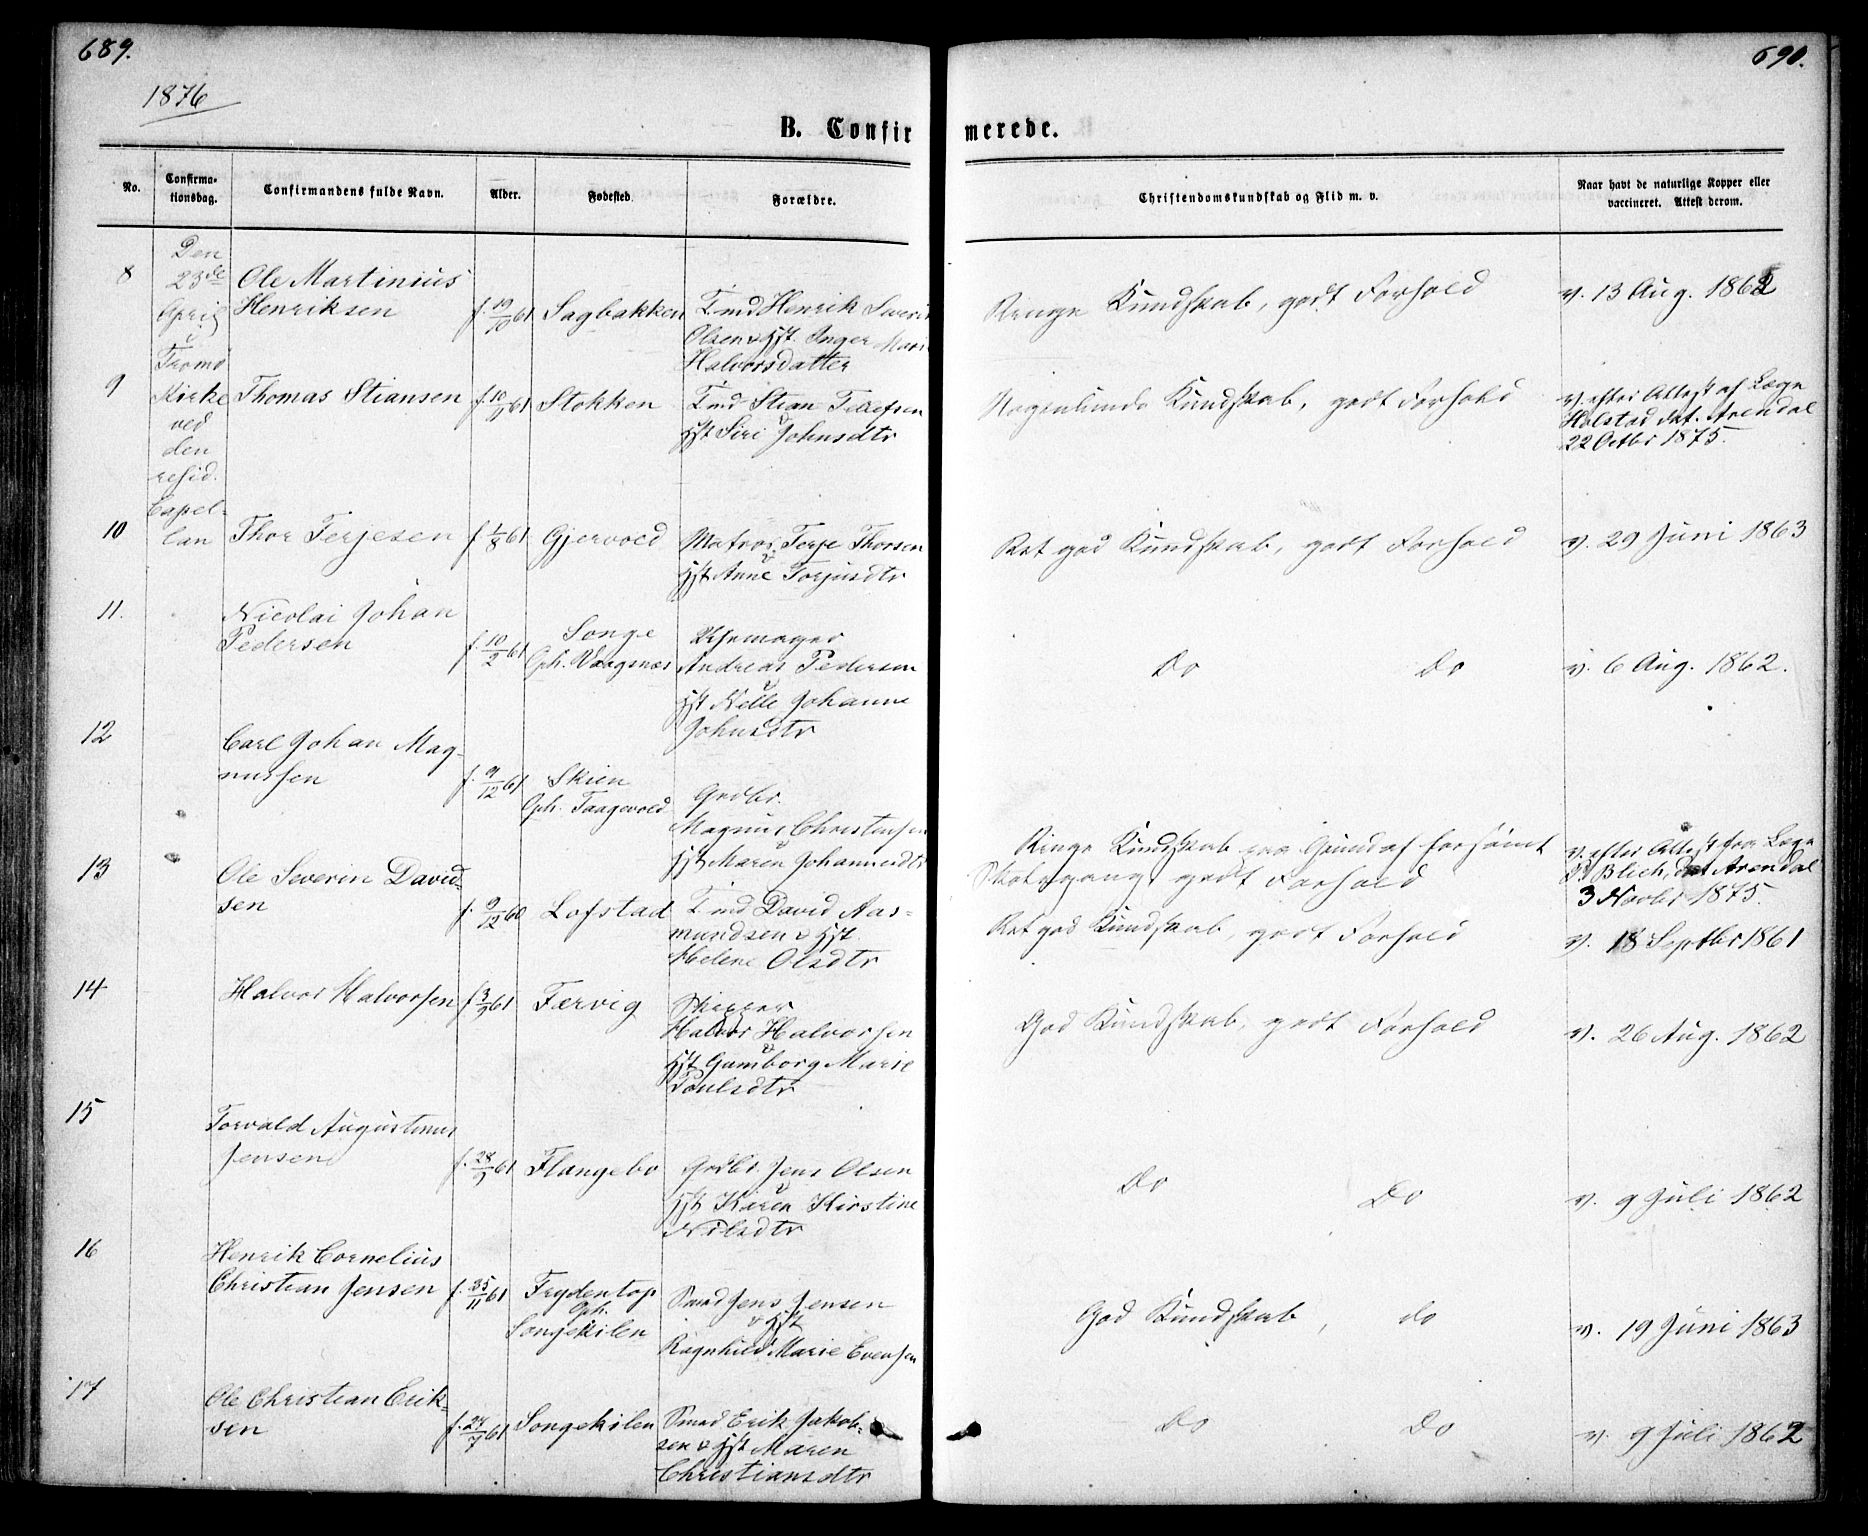 689.
690.
1876
B. Confirmerede.
No.
Confirma-
tionsdag.
Confirmandens fulde Navn.
Alder.
Fødested.
Forældre.
Christendomskundskab og Flid m. v.
Naar havt de naturlige Kopper eller
vaccineret. Attest derom.
Den
23de
April
i
Tromø
Kirke
ved
den
resid.
Capel-
lan
8
Ole Martinius
Henriksen
f. 19/10 61
Sagbakken
Tmd Henrik Severin
Olsen & Hst. Inger Marie
Halvorsdatter
Ringe Kundskab, godt Forhold
v. 13 Aug. 1862
9
Thomas Stiansen
f. 10/9 61
Stokken
Tmd Stian Tellefsen
& Hst Siri Johnsdtr
Nogenlunde Kundskab, godt Forhold
v. efter Attest af Læge
Holstad dat. Arendal
22 Octbr 1875.
10
Thor Terjesen
f. 1/8 61
Gjervold
Matros Terje Thorsen
& Hst Anne Torjusdtr
Ret god Kundskab, godt Forhold
v. 29 Juni 1863
11.
Nicolai Johan
Pedersen
f. 10/2 61
Songe
Oph. Vaagsnes
Uhrmager
Andreas Pedersen
& Hst Nelle Johanne
Johnsdtr
Do Do
v. 6 Aug. 1862.
12
Carl Johan Mag-
nussen
f. 9/12 61
Skien
Oph. Taagevold
Grdbr.
Magnus Christensen
Hst Maren Johannesdtr
Ringe Kundskab paa Grund af forsømt
Skolegang, godt Forhold
v. efter Attest fra Læge
Blich, dat Arendal
3 Novbr 1875.
13
Ole Severin David-
sen
f. 9/12 60
Lofstad
Tmd David Aas-
mundsen & Hst.
Helene Olsdtr
Ret god Kundskab, godt Forhold
v. 18 Septbr 1861
14
Halvor Halvorsen
f. 3/9 61
Færvig
Skipper
Halvor Halvorsen
& Hst Gumborg Marie
Poulsdtr
God Kundskab, godt Forhold
v. 26 Aug. 1862
15
Torvald Augustinus
Jensen
f. 28/9 61
Flangebo
Grdbr. Jens Olsen
& Hst Karen Kirstine
Nilsdtr
Do Do
v. 9 Juli 1862
16
Henrik Cornelius
Christian Jensen
f. 25/11 61
Frydentop
Oph.
Songekilen
Smed Jens Jensen
& Hst
Ragnhild Marie Evensen
God Kundskab, do
v. 19 Juni 1863
17
Ole Christian Erik-
sen
f. 24/7 61
Songekilen
Smed Erik Jakob-
sen & Hst Maren
Christiansdtr
Do Do
v. 9 Juli 1862